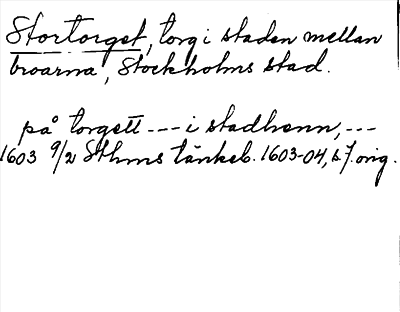 Stortorget, torg i staden mellan
broarna, Stockholms stad.
på torgett --- i stadhenn, ---
1603 9/2 Sthms tänkeb. 1603-04, s 7. orig.